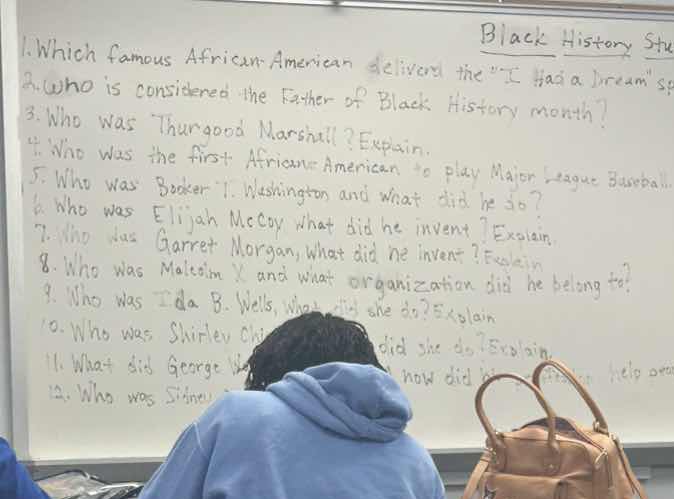 Black History Stu
1. Which famous African-American deliverd the "I Had a Dream" sp
2. Who is considered the Father of Black History month?
3. Who was Thurgood Marshall? Explain.
4. Who was the first African-American to play Major League Baseball.
5. Who was Booker T. Washington and what did he do?
6. Who was Elijah McCoy what did he invent? Explain.
7. Who was Garret Morgan, what did he invent? Explain
8. Who was Malcolm X and what organization did he belong to?
9. Who was Ida B. Wells, what did she do? Explain
10. Who was Shirley Chi did she do? Explain
11. What did George how did help peo
12. Who was Sidney